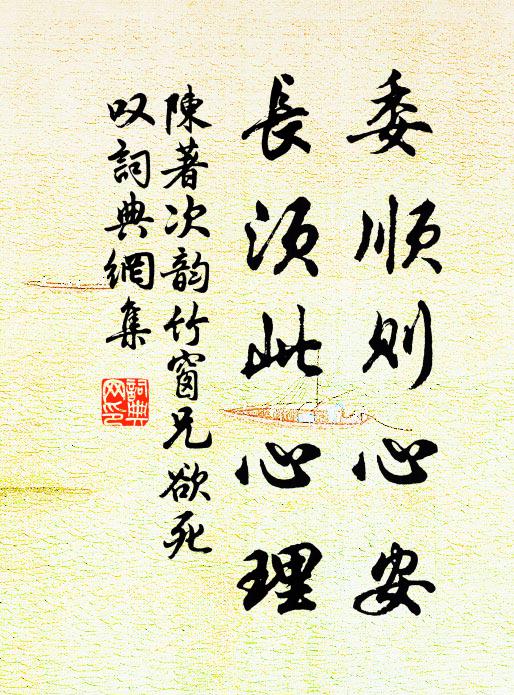 委顺则心安
長须此心理
陳著次韵竹窗兄欲死
叹詞典網集
詞典
网印